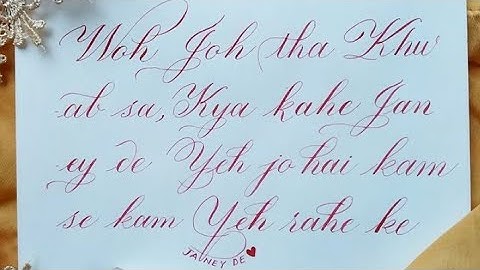 Woh Joh tha Khu
ab sa, Kya kahe Jan
ey de Yeh jo hai kam
se kam Yeh rahe ke
JANEY DE